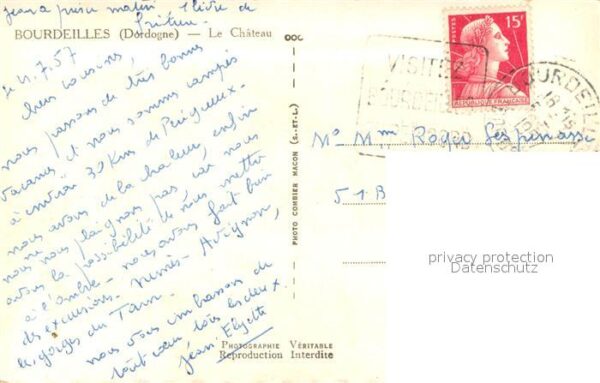 jean a pris ce matin 1 livre de
friture
BOURDEILLES (Dordogne) — Le Château
le 11.7.57
Chers cousins,
nous passons de très bonnes
vacances et nous sommes campés
à environ 30 Kms de Périgueux.
nous avons de la chaleur enfin
ne nous plaignons pas, car nous
avons la possibilité de nous mettre
à l'ombre. nous avons fait bien
des excursions. Nîmes - Avignon,
les gorges du Tarn.
nous vous embrassons de
tout cœur tous les deux.
Jean Elyette
COC
PHOTO COMBIER MACON (S.-ET-L.)
PHOTOGRAPHIE VÉRITABLE
Reproduction Interdite
POSTES 15F
REPUBLIQUE FRANÇAISE
VISITEZ
BOURDEILLES
BOURDEILLES
18
Mr Mme Roger Lespinasse
51 B
privacy protection
Datenschutz